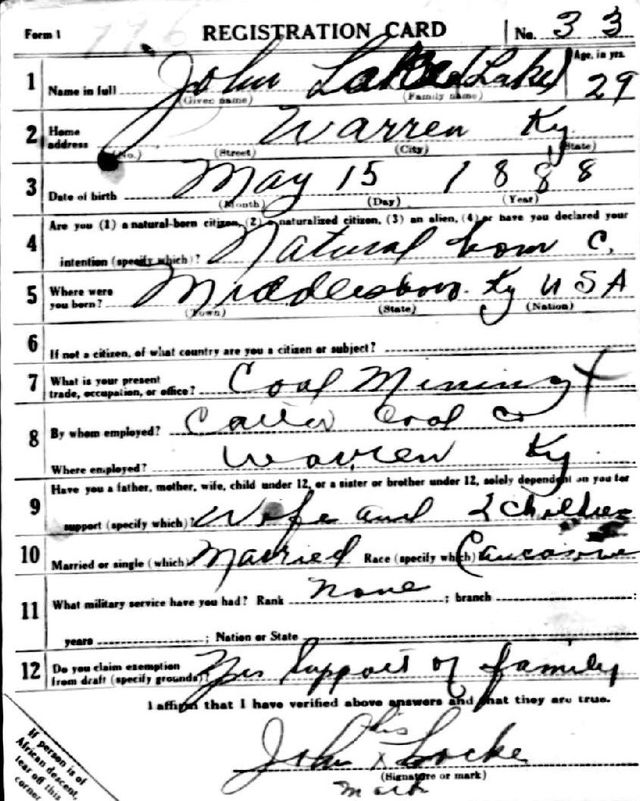 Form 1 776 REGISTRATION CARD No. 33
1 Name in full John (Lake) Age, in yrs. 29
(Given name) (Family name)
2 Home address Warren Ky
(No.) (Street) (City) (State)
3 Date of birth May 15 1888
(Month) (Day) (Year)
4 Are you (1) a natural-born citizen, (2) a naturalized citizen, (3) an alien, (4) or have you declared your
intention (specify which)? Natural born C.
5 Where were you born? Middlesboro Ky USA
(Town) (State) (Nation)
6 If not a citizen, of what country are you a citizen or subject?
7 What is your present trade, occupation, or office? Coal Mining X
8 By whom employed? Coal Co
Where employed? Warren Ky
9 Have you a father, mother, wife, child under 12, or a sister or brother under 12, solely dependent on you for
support (specify which)? Wife and 2 children
10 Married or single (which) Married Race (specify which) Caucasian
11 What military service have you had? Rank None ; branch
years ; Nation or State
12 Do you claim exemption from draft (specify grounds)? Yes Support of family
I affirm that I have verified above answers and that they are true.
his
John x Locke
(Signature or mark)
mark
If person is of
African descent,
tear off this
corner